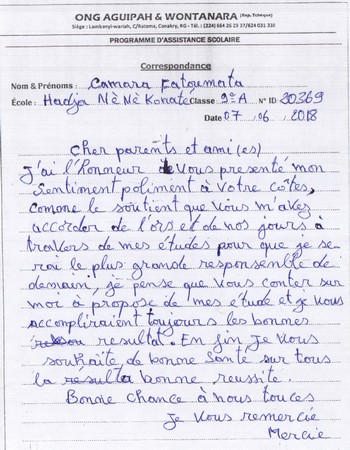 ONG AGUIPAH & WONTANARA (Rep, Tchèque)
Siège : Lambanyi-wariah, C/Ratoma, Conakry, RG - Tél. : (224) 664 26 29 37/624 031 330
PROGRAMME D'ASSISTANCE SCOLAIRE
Correspondance
Nom & Prénoms : Camara Fatoumata
École : Hadja Nè Nè Konaté Classe 9è A N° ID 30369
Date 07 06 2018
Cher parents et ami(es)
J'ai l'honneur de Vous presenté mon
Sentiment poliment à Votre côtes,
comone le soutient que Vous m'avez
accorder de l'ors et de nos jours à
travers de mes etudes pour que je se-
rai le plus grande responsenble de
demain, je pense que Vous conter sur
moi à propose de mes etude et je Vous
accompliraient toujours les bonnes
resultat. En fin Je Vous
souhaite de bonne Santé sur tous
la résulta bonne, reussite.
Bonne Chance à nous touces
Je Vous remercie
Mercie